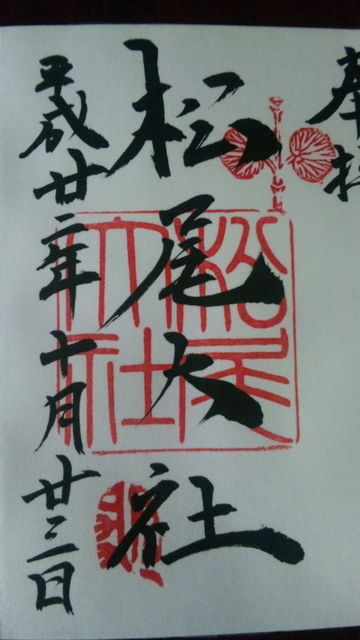 奉拝
松尾大社
平成廿二年十月廿三日
松尾大社